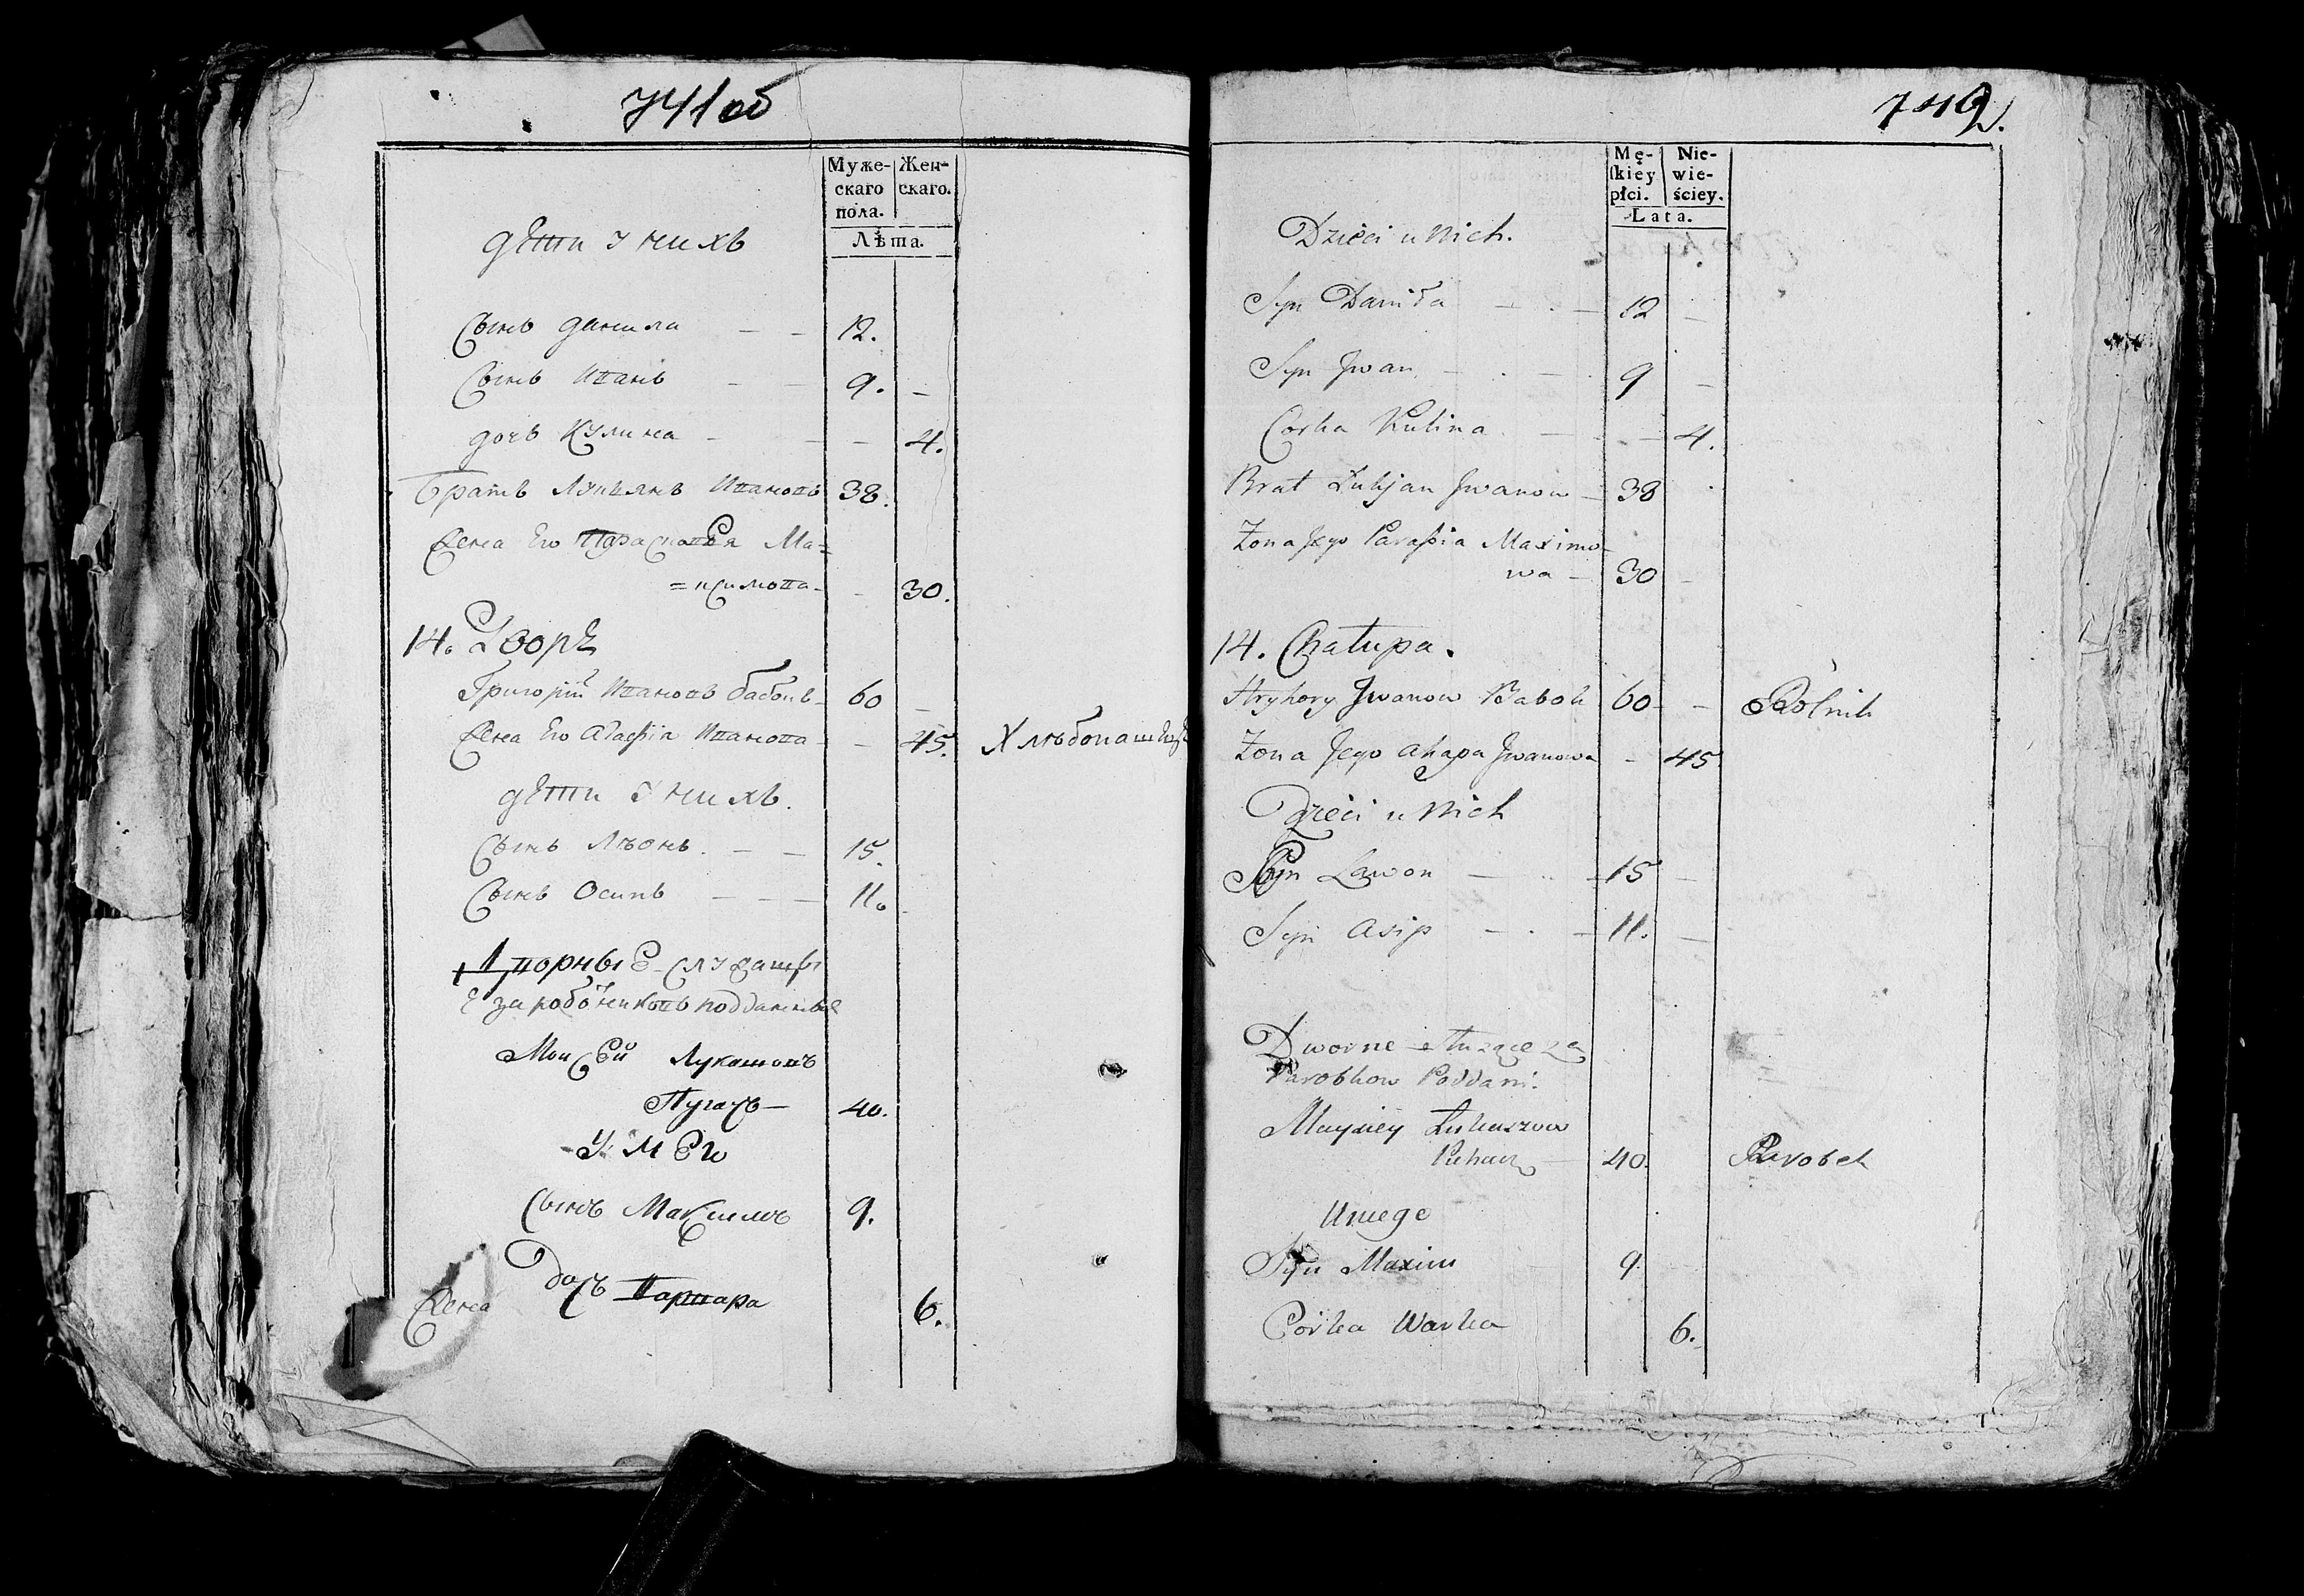 741об
Муже- Жен-
скаго скаго.
пола.
Лѣта.
дѣти у нихъ
Сынъ данила — — 12.
Сынъ Иванъ — — 9. —
дочь Кулина — — — 4.
Братъ Лукьянъ Ивановъ 38.
Жена Его Парасковья Ма=
=ксимова - - 30.
14. Дворъ
Григорій Ивановъ бабокъ - 60 —
Жена Его Агафія Иванова - — 45. Хлѣбопашецъ
дѣти у нихъ.
Сынъ Лѣонъ. — — 15.
Сынъ Осипъ — — — 11.
Дворные служащіе
за работниковъ подданные
Моисей Лукашовъ
Пугачъ — 40.
У нЕго
Сынъ Максимъ 9.
Дочь Варвара 6.
Жена
742.
Mę- Nie-
skiey wie-
płci. ściey.
Lata.
Dzieci u Nich.
Syn Daniła — . — 12 —
Syn Jwan — . — 9 —
Corka Kulina — . — 4.
Brat Łukjan Jwanow — 38 .
Żona Jego Parasia Maximo-
wa — 30 —
14. Chatupa.
Hryhory Jwanow Babok 60 — Rolnik
Żona Jego Ahapa Jwanowa - 45
Dzieci u Nich
Syn Lawon — .. - 15 —
Syn Asip — . — 11. —
Dworne słuzące za
Parobkow Poddani.
Mayziey Łukaszow
Puhacz — 40. Parobek
U niego
Syn Maxim 9.
Corka Warka 6.